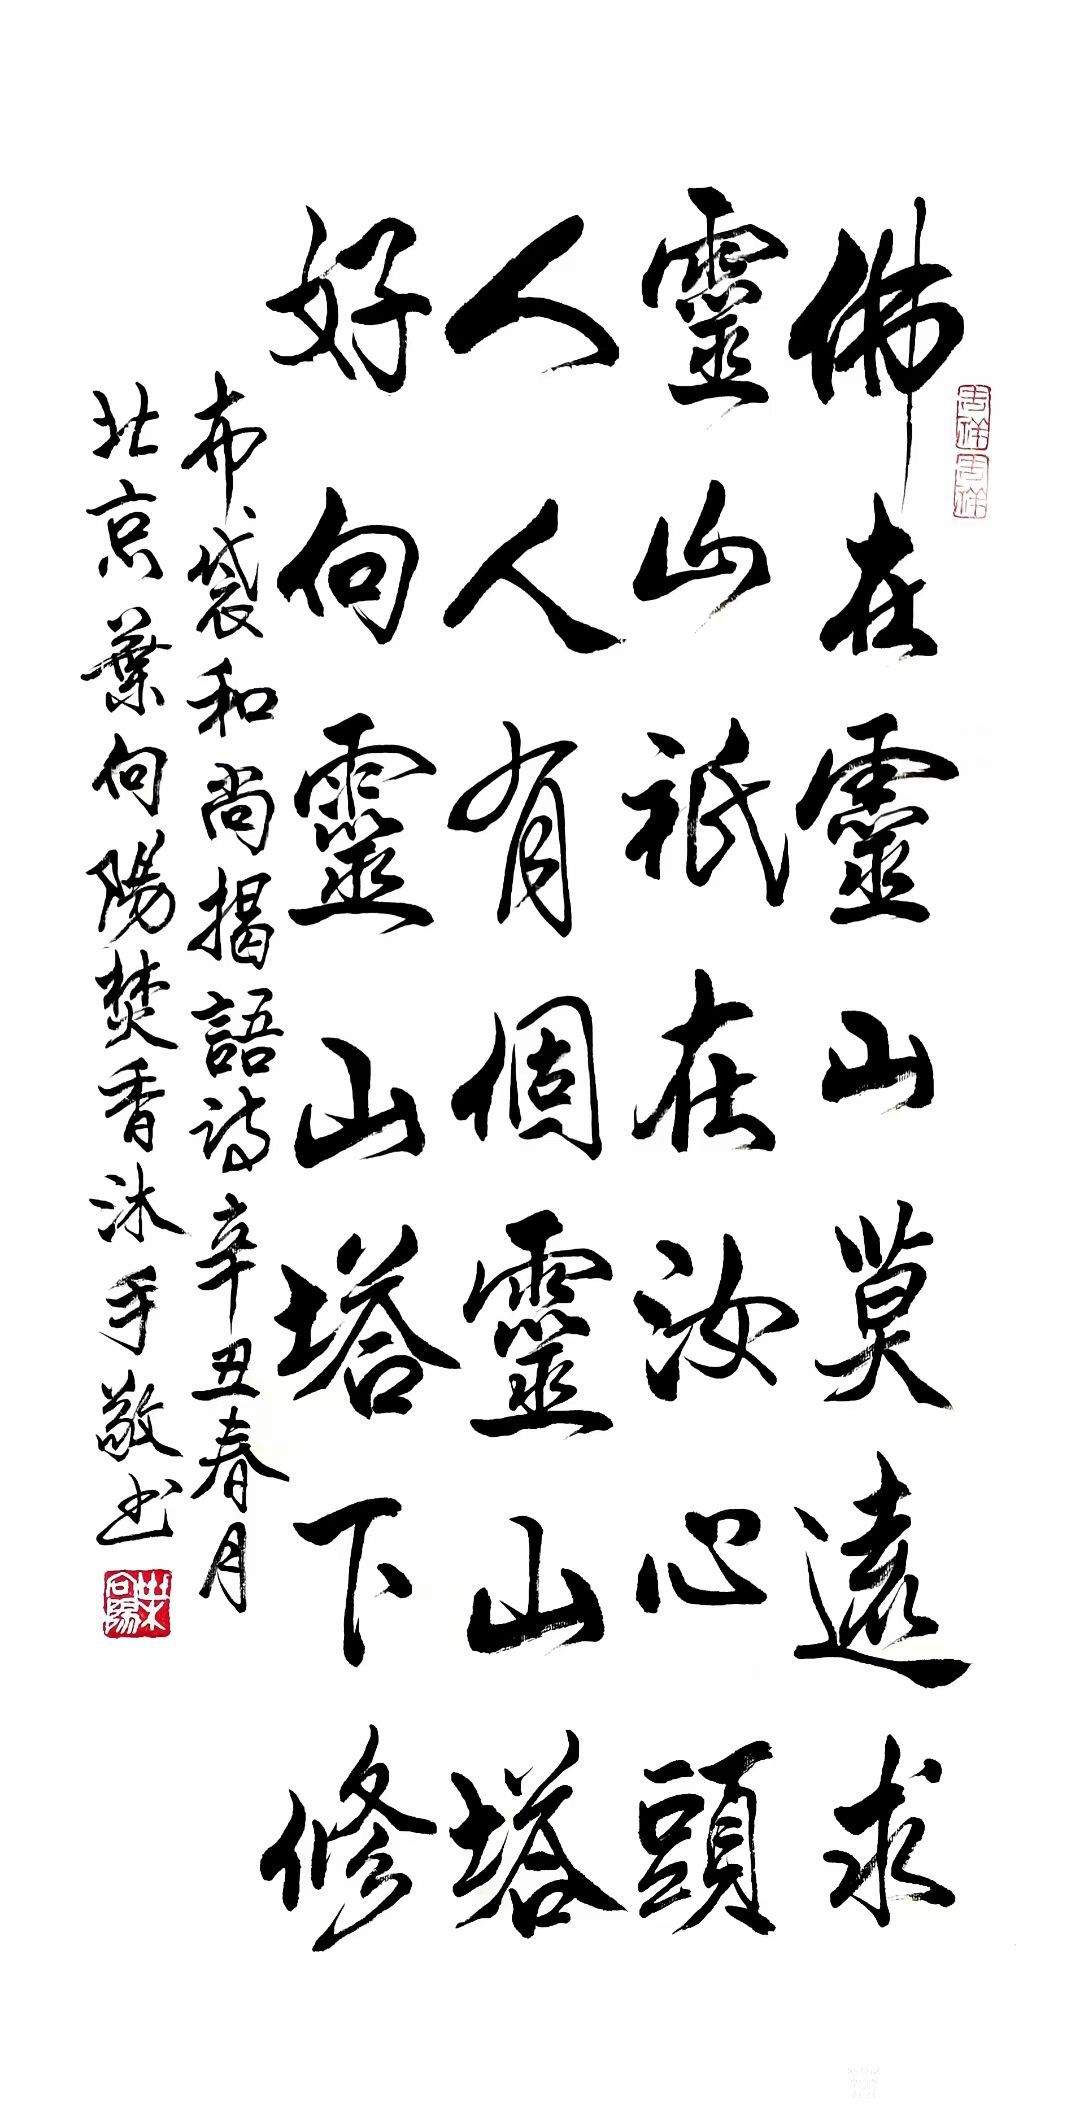 佛在靈山莫遠求
靈山祇在汝心頭
人人有個靈山塔
好向靈山塔下修
布袋和尚揭語詩辛丑春月
北京葉向陽焚香沐手敬书
葉向陽